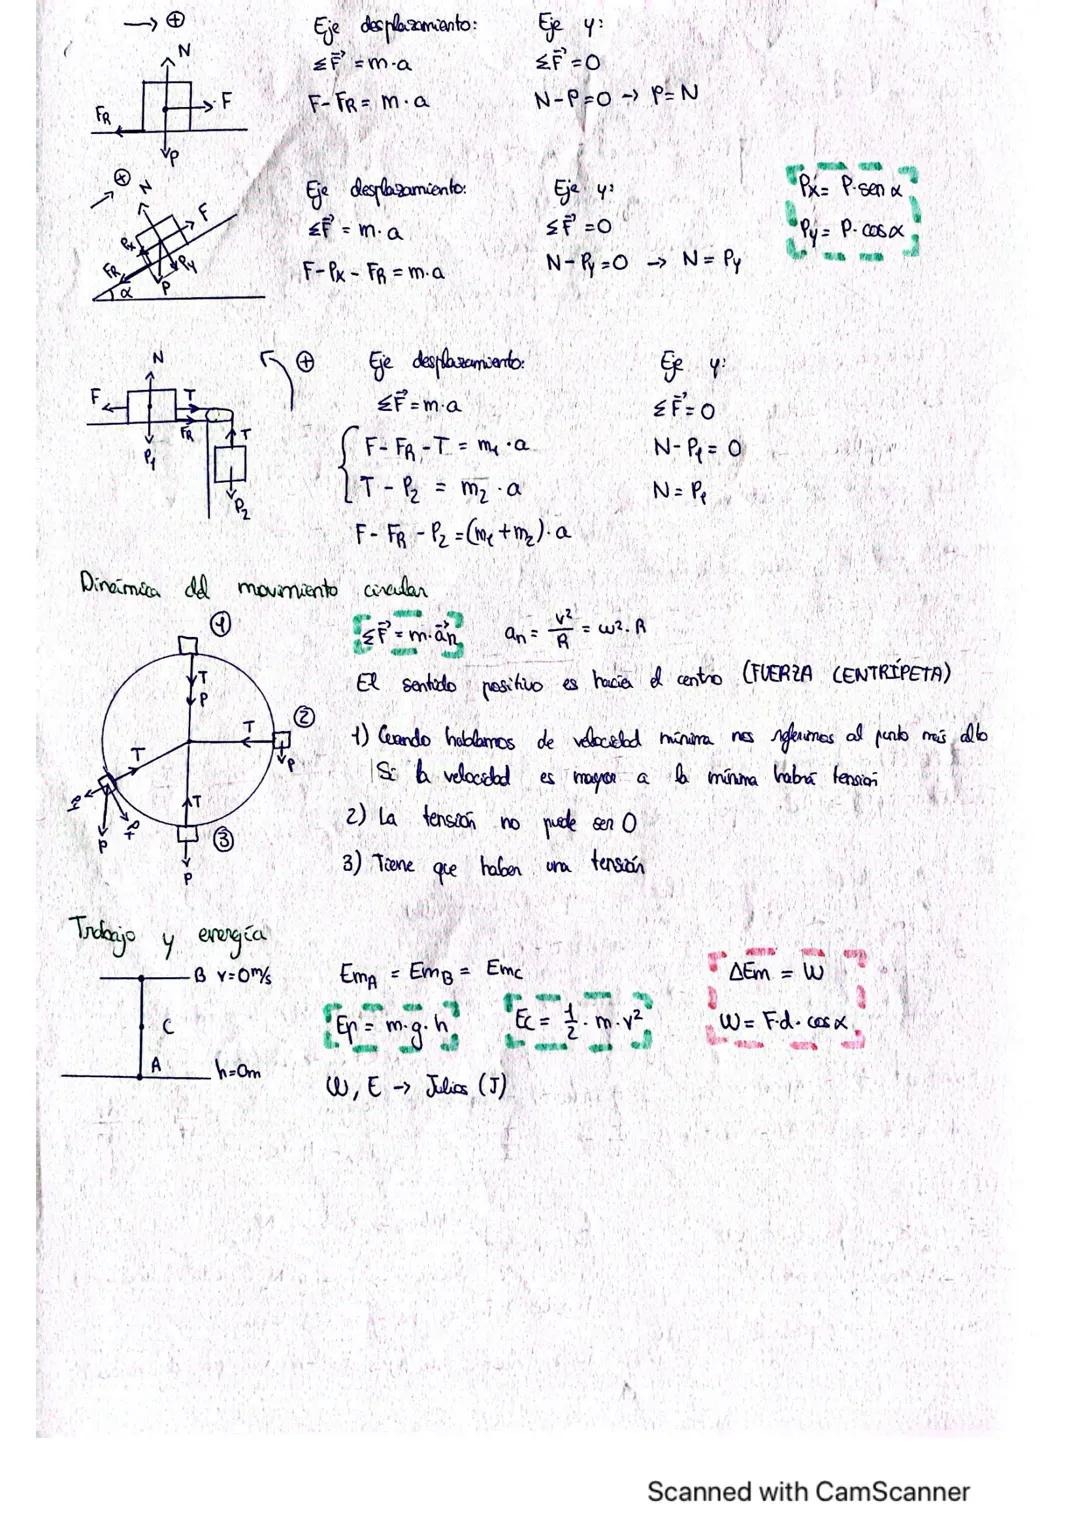 → ⊕
Eje desplazamiento:
Eje y:
ΣF⃗ = m·a
ΣF⃗ = 0
F - FR = m·a
N - P = 0 → P = N
N
F
FR
P
⊕
N
F
Px
Py
FR
P
α
Eje desplazamiento:
Eje y:
ΣF⃗ = m·a
ΣF⃗ = 0
F - Px - FR = m·a
N - Py = 0 → N = Py
Px = P·sen α
Py = P·cos α
N
F
T
FR
P1
T
P2
⊕
Eje desplazamiento:
Eje y:
ΣF⃗ = m·a
ΣF⃗ = 0
F - FR - T = m1·a
N - P1 = 0
T - P2 = m2·a
N = P1
F - FR - P2 = (m1 + m2)·a
Dinámica del movimiento circular
1
T
P
2
T
P
T
P
T
3
P
ΣF⃗ = m·a⃗n
an = v²/R = ω²·R
El sentido positivo es hacia el centro (FUERZA CENTRÍPETA)
1) Cuando hablamos de velocidad mínima nos referimos al punto más alto
Si la velocidad es mayor a la mínima habrá tensión
2) La tensión no puede ser 0
3) Tiene que haber una tensión
Trabajo y energía
B v=0m/s
C
A
h=0m
EmA = EmB = Emc
Ep = m·g·h
Ec = 1/2·m·v²
W, E → Julios (J)
ΔEm = W
W = F·d·cos α
Scanned with CamScanner